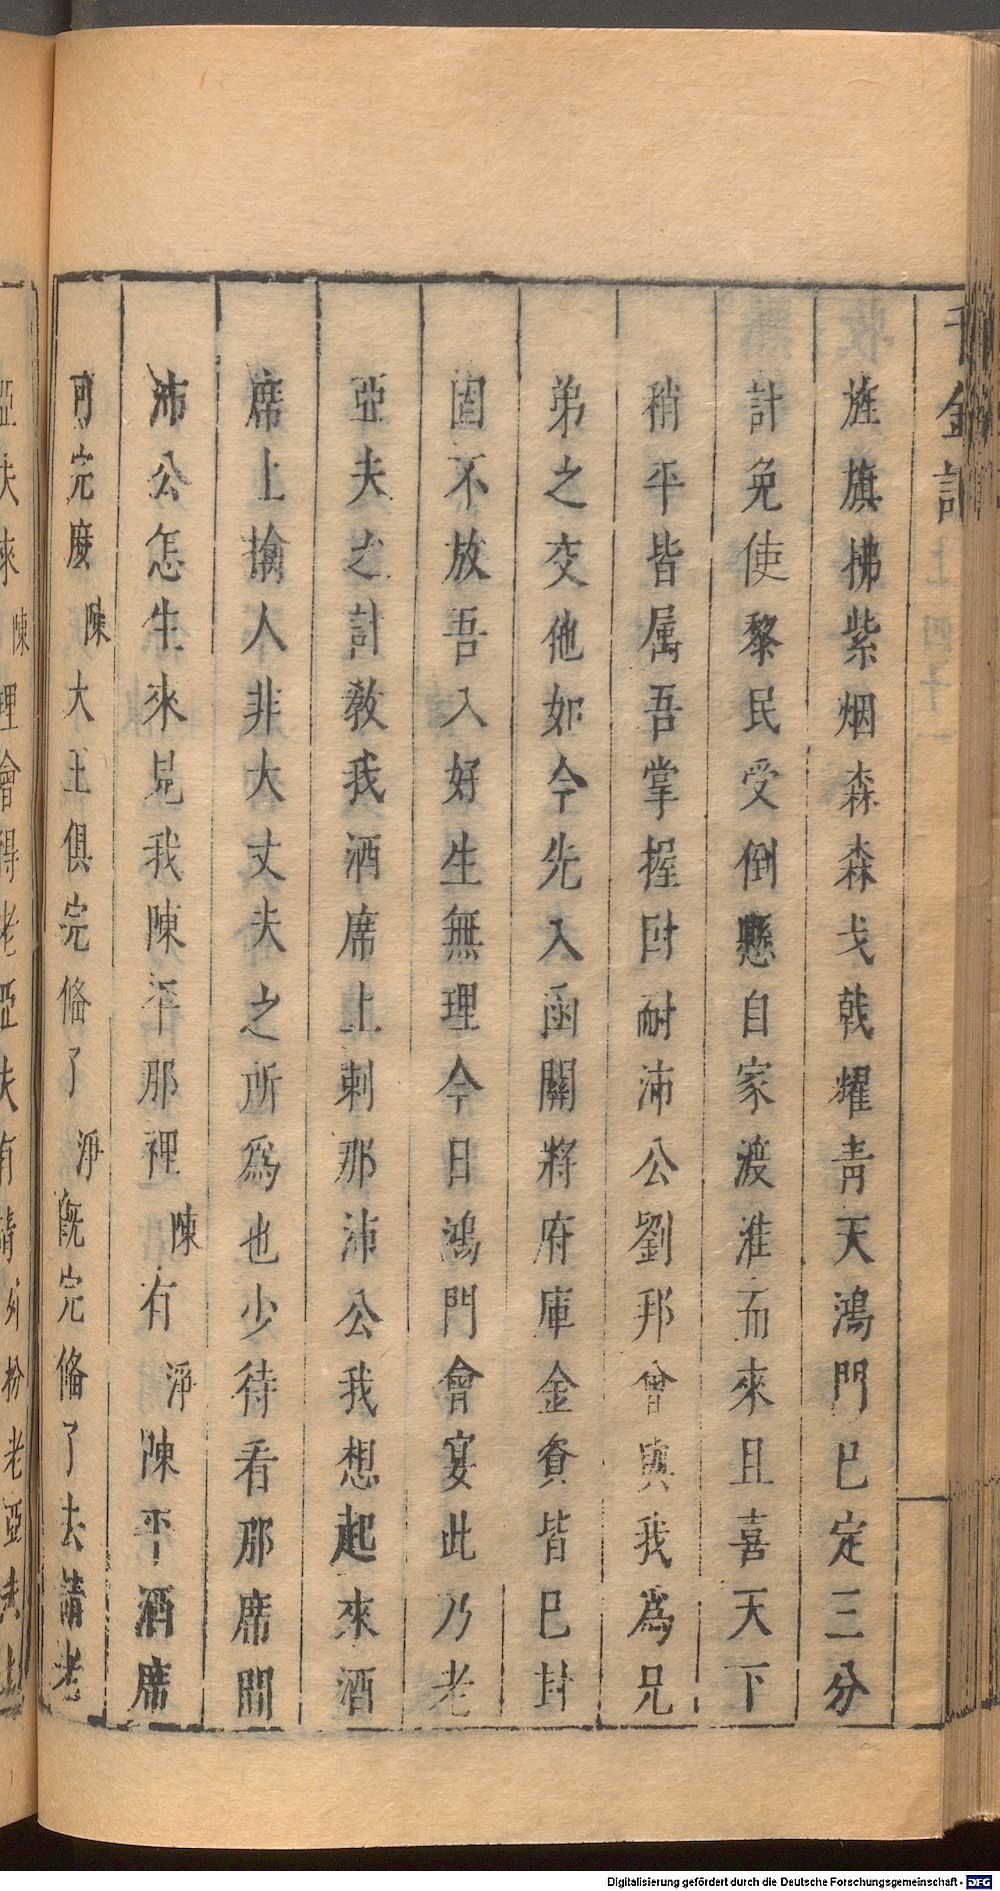 千金記
旌旗拂紫烟森森戈戟耀青天鴻門已定三分
計免使黎民受倒懸自家渡淮而來且喜天下
稍平皆属吾掌握叵耐沛公劉邦曾與我爲兄
弟之交他如今先入函關將府庫金貟皆已封
固不放吾入好生無理今日鴻門會宴此乃老
亞夫之計教我酒席上刺那沛公我想起來酒
席上擒人非大丈夫之所爲也少待看那席間
沛公怎生來見我陳平那裡陳有淨陳平酒席
可完麽陳大王俱完俻了淨既完俻了去請老
亞夫來陳理會得老亞夫有請
Digitalisierung gefördert durch die Deutsche Forschungsgemeinschaft - DFG